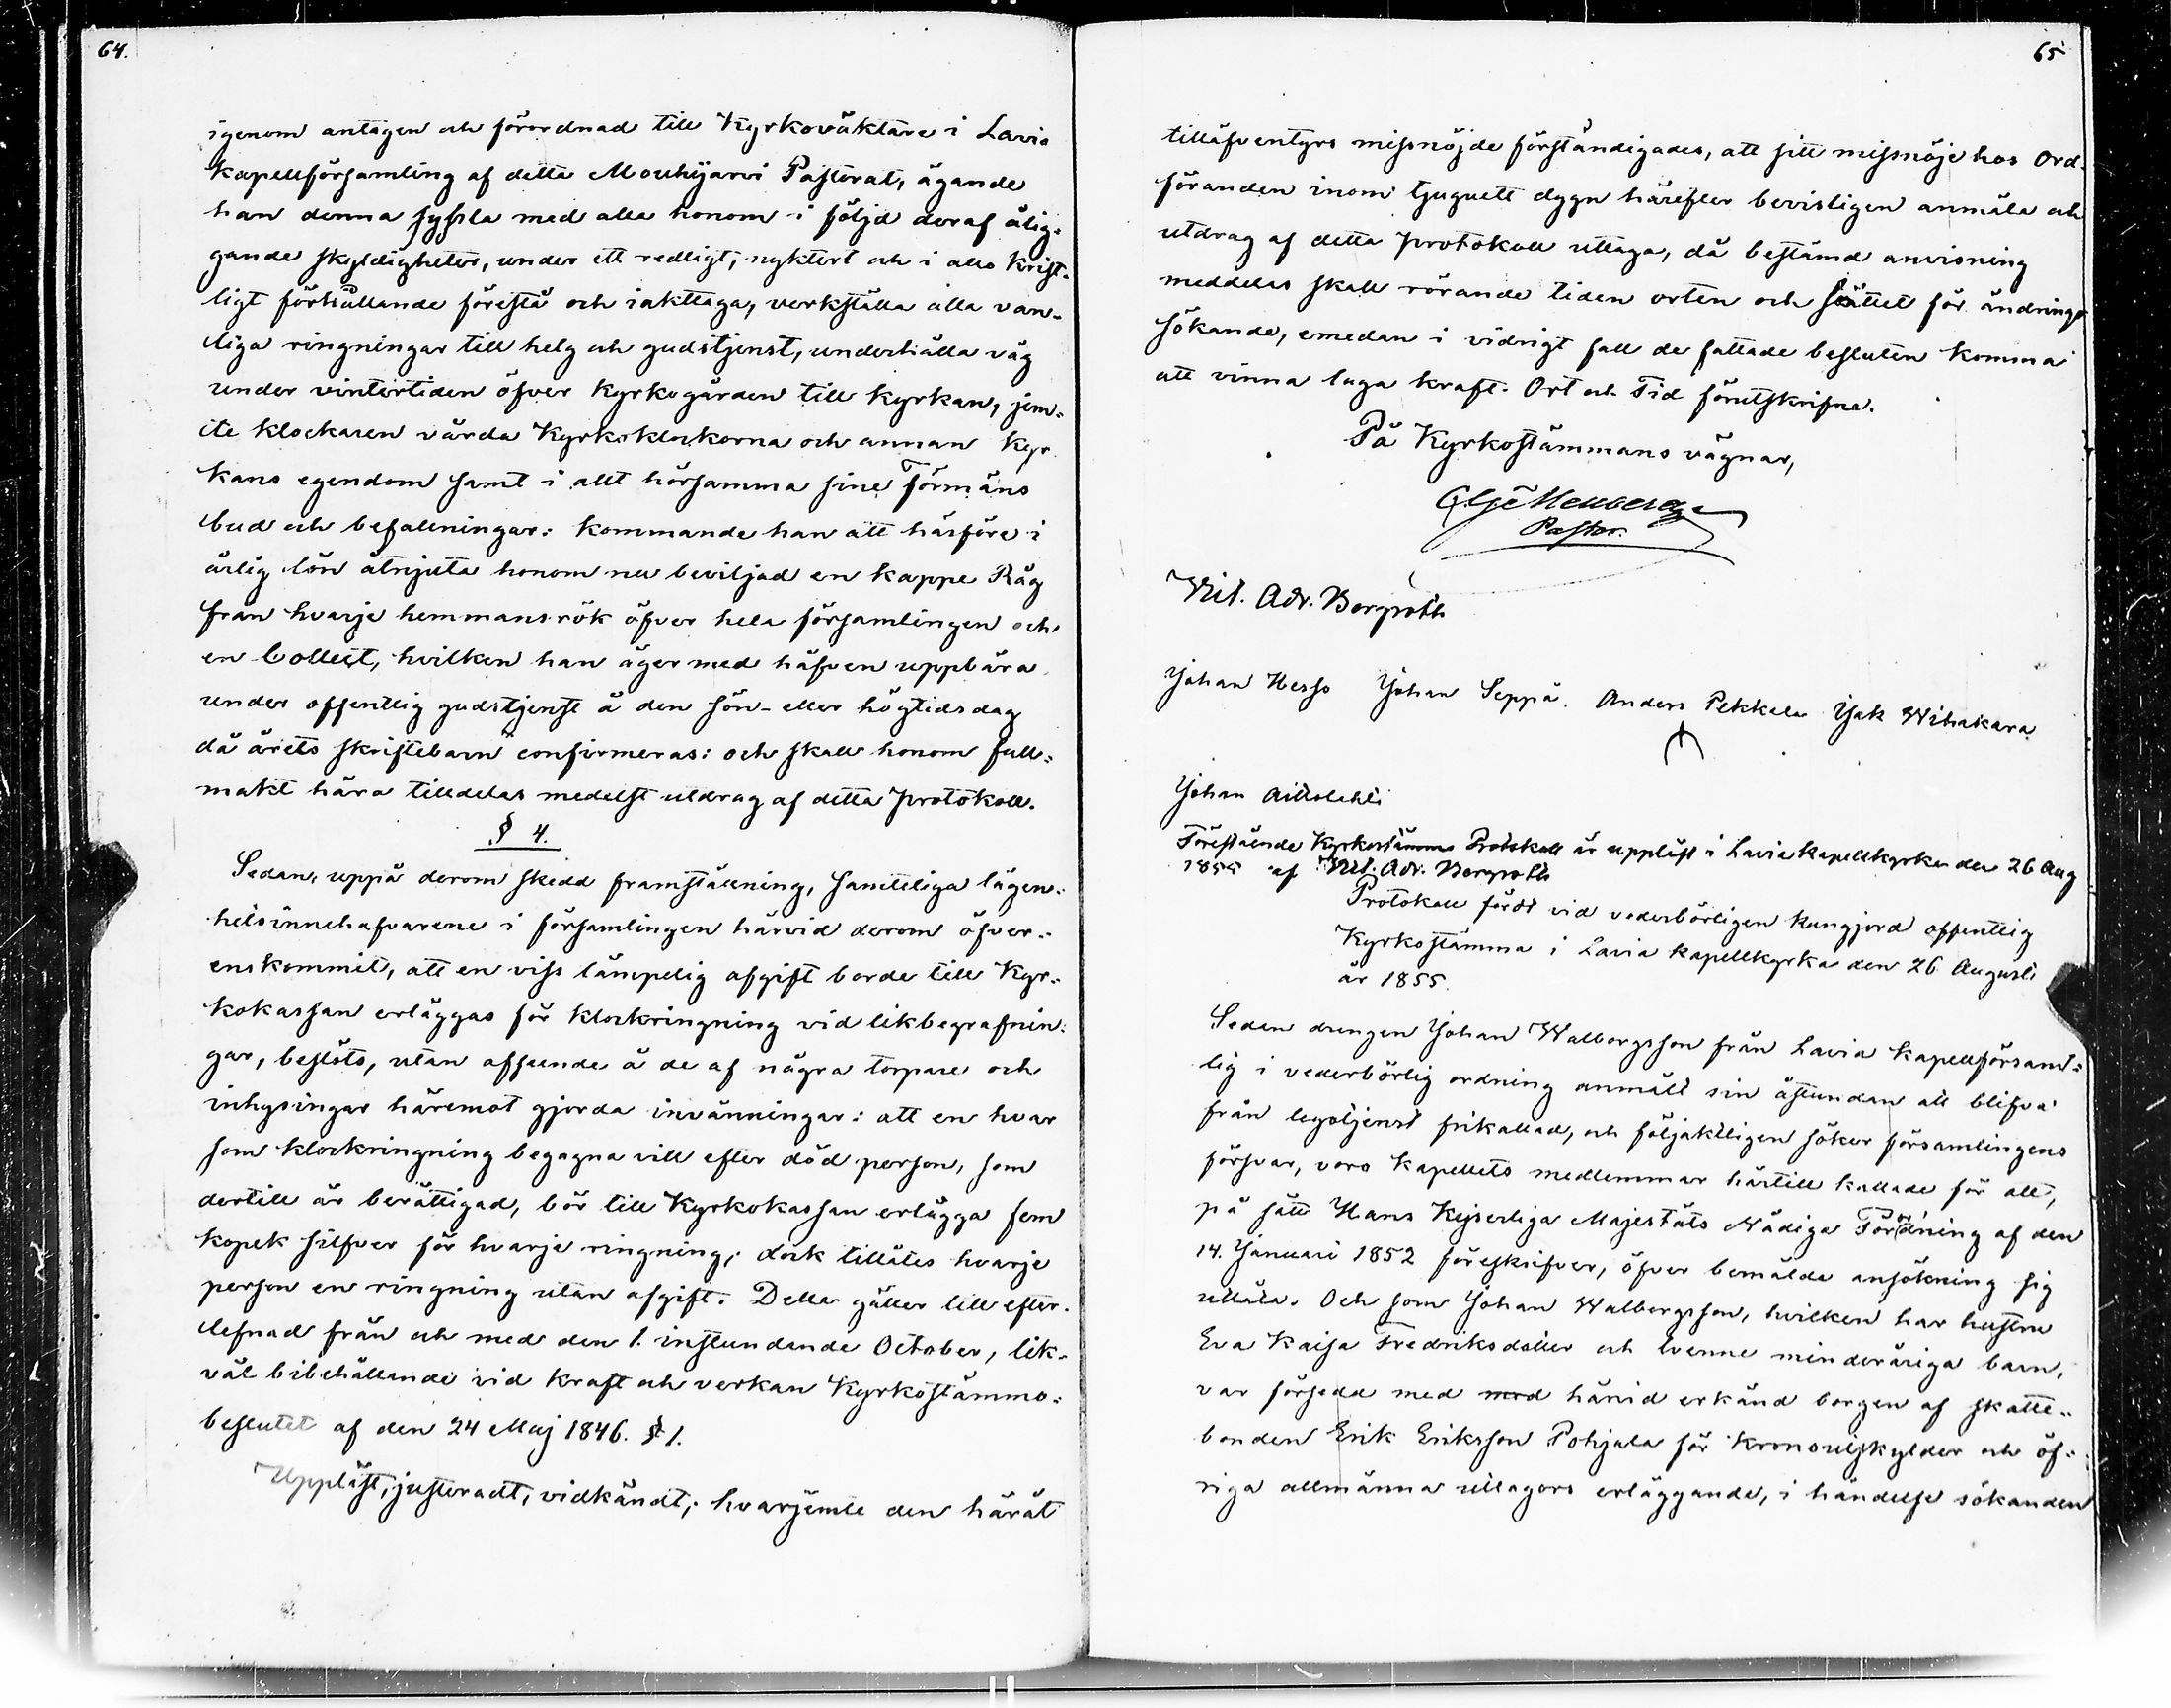 64.
igenom antagen och förordnad till Kyrkoväktare i Lavia
kapellförsamling af detta Mouhijärvi Pastorat, ägande
han denna syssla med alla honom i följd deraf ålig-
gande skyldigheter, under ett redligt, nyktert och i allo krist-
ligt förhållande förestå och iakttaga, verkställa alla van-
liga ringningar till helg och gudstjenst, underhålla väg
under vintertiden öfver kyrkogården till kyrkan, jem-
te klockaren vårda Kyrkoklockorna och annan Kyr
kans egendom samt i allt hörsamma sine Förmäns
bud och befallningar: kommande han att härföre i
årlig lön åtnjuta honom nu beviljad en kappe Råg
från hvarje hemmansrök öfver hela församlingen och
en Collect, hvilken han äger med håfven uppbära
under offentlig gudstjenst å den sön- eller högtidsdag
då årets skriftebarn confirmeras: och skall honom full-
makt håra tilldelas medelst utdrag af detta Protokoll.
§ 4.
Sedan, uppå derom skedd framställning, samtelige lägen-
hetsinnehafvarene i församlingen härvid derom öfver-
enskommit, att en viss lämpelig afgift borde till Kyr-
kokassan erläggas för klockringning vid likbegrafnin-
gar, beslöts, utan afseende å de af några torpare och
inhysingar häremot gjorda invänningar: att en hvar
som klockringning begagna vill efter död person, som
dertill är berättigad, bör till Kyrkokassan erlägga fem
kopek silfver för hvarje ringning; dock tillåtes hvarje
person en ringning utan afgift. Detta gäller till efter-
lefnad från och med den 1. instundande October, lik-
väl bibehållande vid kraft och verkan Kyrkostämmo-
beslutet af den 24 Maj 1846. § 1.
Uppläst, justeradt, vidkändt; hvarjemte den häråt
65
tilläfventyrs missnöjde förständigades, att sitt missnöje hos Ord-
föranden inom tjuguett dygn härefter bevisligen anmäla och
utdrag af detta Protokoll uttaga, då bestämd anvisning
meddelas skall rörande tiden orten och sättet för ändrings
sökande, emedan i vidrigt fall de fattade besluten komma
att vinna laga kraft. Ort och Tid förutskrifne.
På Kyrkostämmans vägnar,
Pastor.
Vit. Adr. Bergroth
Johan Hesso Johan Seppä. Anders Pekkala Isak Wihakara
Johan
Förestående Kyrkostämmo Protokoll är uppläst i Lavia kapellkyrka den 26 Aug
1855 af Vit. Adr. Bergroth
Protokoll fördt vid vederbörligen kungjord offentlig
Kyrkostämma i Lavia kapellkyrka den 26 Augusti
år 1855.
Sedan drengen Johan Walborgsson från Lavia kapellförsam-
lig i vederbörlig ordning anmält sin åstundan att blifva
från legotjenst frikallad, och följaktligen söker församlingens
försvar, voro kapellets medlemmar härtill kallade för att,
på sätt Hans Kejserliga Majestäts Nådiga Förordning af den
14. Januari 1852 föreskrifver, öfver bemälde ansökning sig
utlåta. Och som Johan Walborgsson, hvilken har hustru
Eva Kaisa Fredriksdotter och tvenne minderåriga barn,
var försedd med med härvid erkänd borgen af skatte-
bonden Erik Eriksson Pohjala för Kronoutskylder och öf-
riga allmänna utlagors erläggande, i händelse sökanden